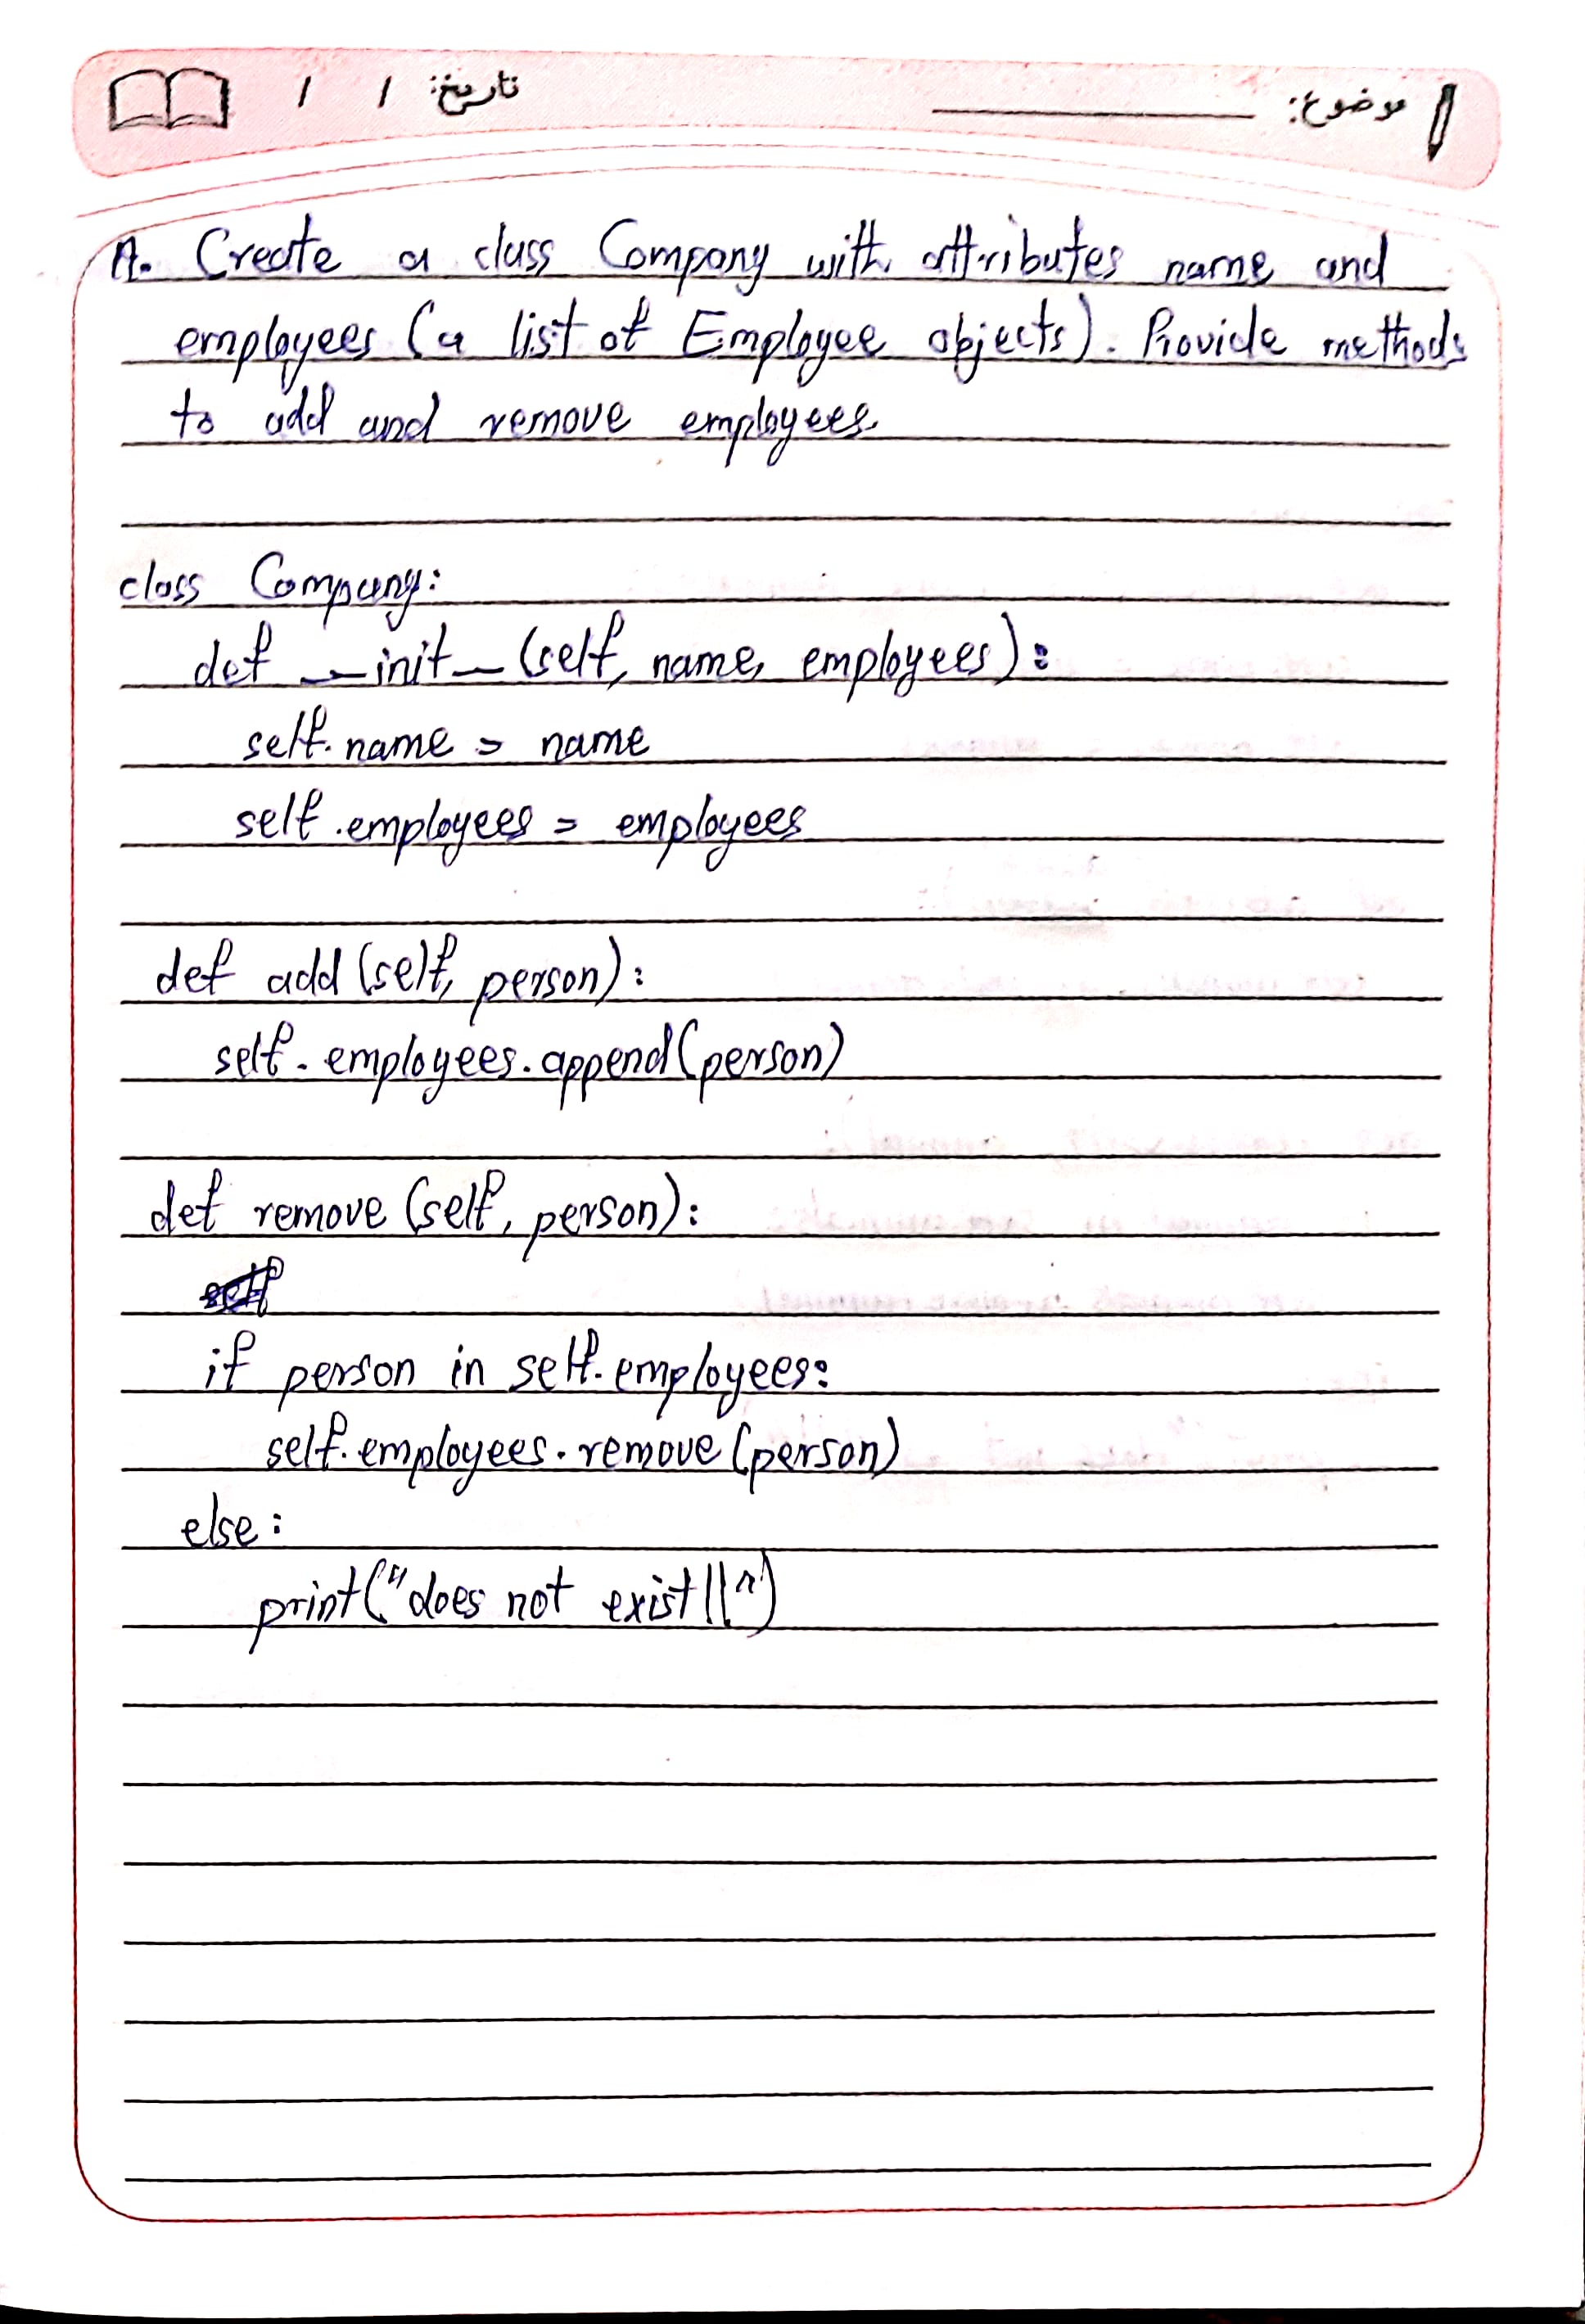 موضوع:
تاریخ: / /
A. Create a class Company with attributes name and
employees (a list of Employee objects). Provide methods
to add and remove employees.
class Company:
def __init__(self, name, employees):
self.name = name
self.employees = employees
def add(self, person):
self.employees.append(person)
def remove(self, person):
self
if person in self.employees:
self.employees.remove(person)
else:
print("does not exist!!")